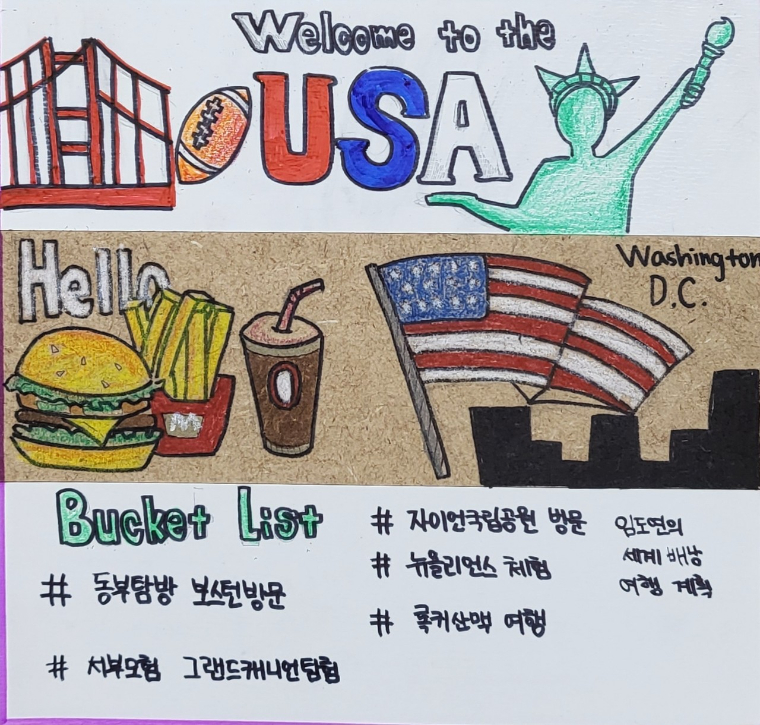 Welcome to the
USA
Hello
Washington
D.C.
Bucket List
# 동부탐방 보스턴방문
# 서부모험 그랜드캐니언탐험
# 자이언국립공원 방문
# 뉴올리언스 체험
# 록커산맥 여행
임도연의
세계 배낭
여행 계획